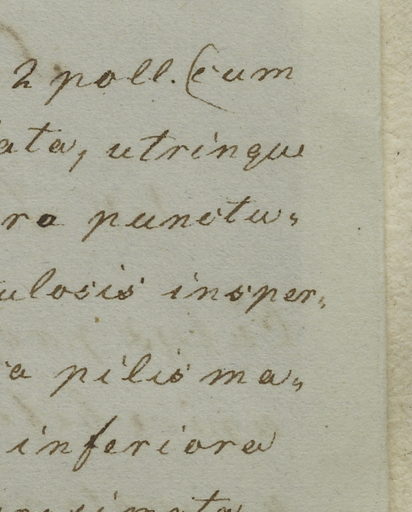 2 poll. (cum
ata, utrinque
ra punctu-
ulosis insper-
a pilis ma-
inferiora